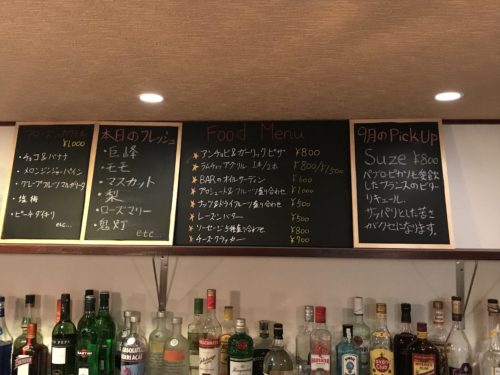 フローズンカクテル
¥1,000
・チョコ&バナナ
・メロンジンジャーパイン
・グレープフルーツマルガリータ
・塩梅
・ピーチダイキリ
etc...
本日のフレッシュ
・巨峰
・モモ
・マスカット
・梨
・ローズマリー
・鬼灯
etc...
Food Menu
★アンチョビ&ガーリックピザ ¥800
★ラムチョップグリル 1本/2本 ¥800/¥1,500
★BARのオイルサーディン ¥800
★プロシュート&フルーツ盛り合わせ ¥1,000
★ナッツ&ドライフルーツ盛り合わせ ¥500
★レーズンバター ¥500
★ソーセージ5種盛り合わせ ¥800
★チーズクラッカー ¥700
9月のPick Up
Suze ¥800
パブロ・ピカソも愛飲
したフランスのビター
リキュール。
サッパリとした苦さ
がクセになります。
ABSOLUT
BEEFEATER